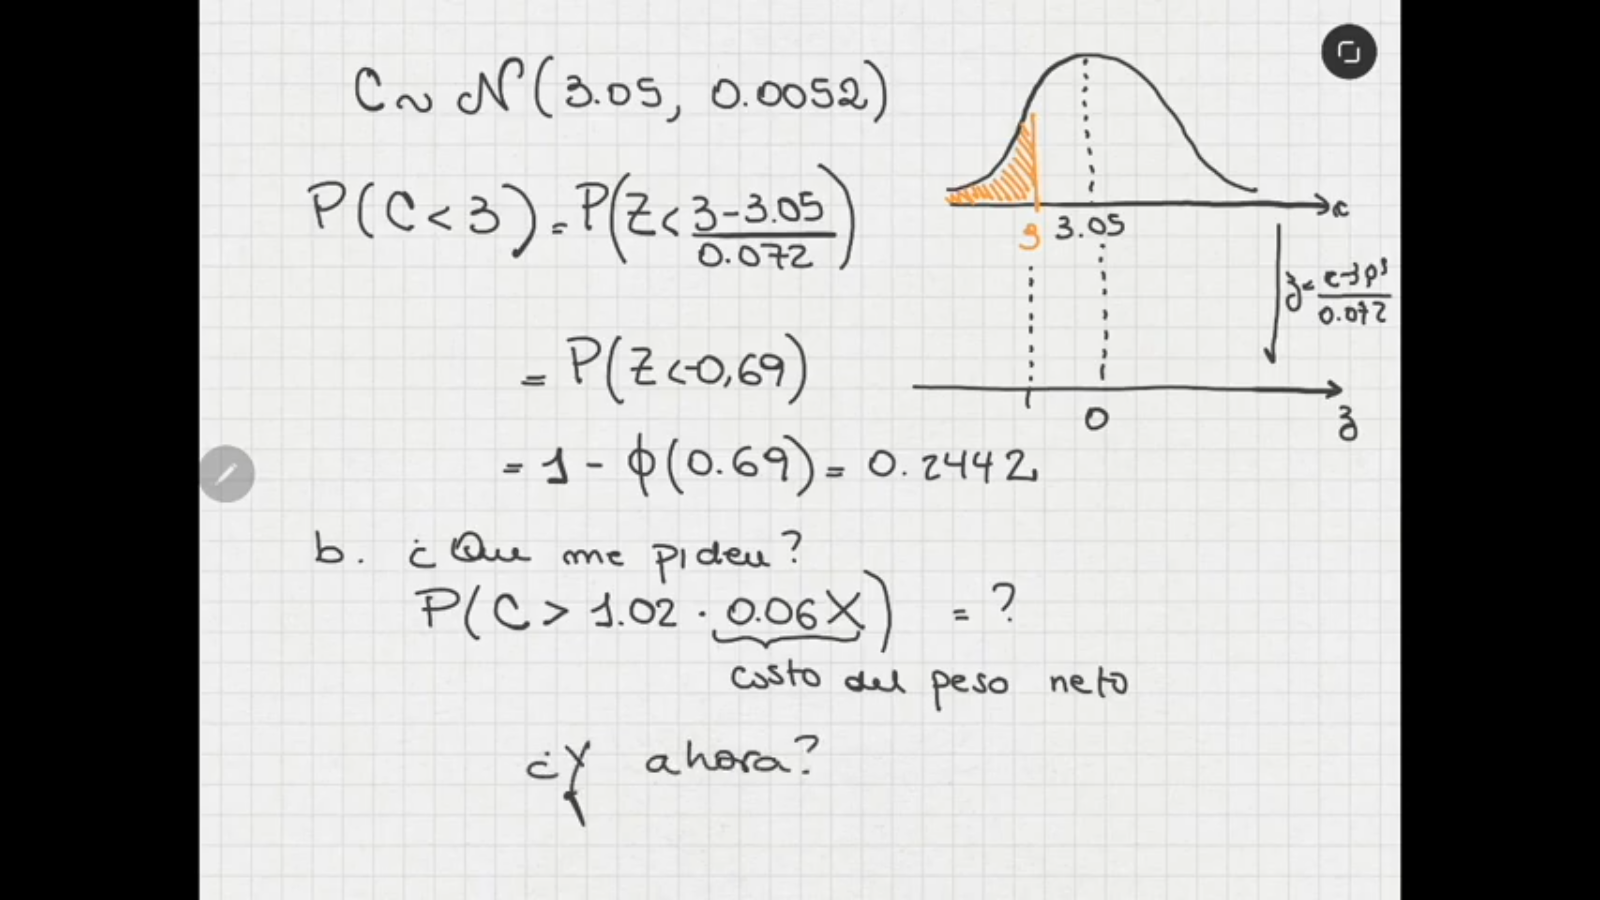 C ~ N(3.05, 0.0052)
P(C < 3) = P(Z < (3 - 3.05)/0.072)
= P(Z < -0,69)
= 1 - ϕ(0.69) = 0.2442
c
3 3.05
0.072
0
z
b. ¿Que me piden?
P(C > 1.02 · 0.06X) = ?
costo del peso neto
¿Y ahora?